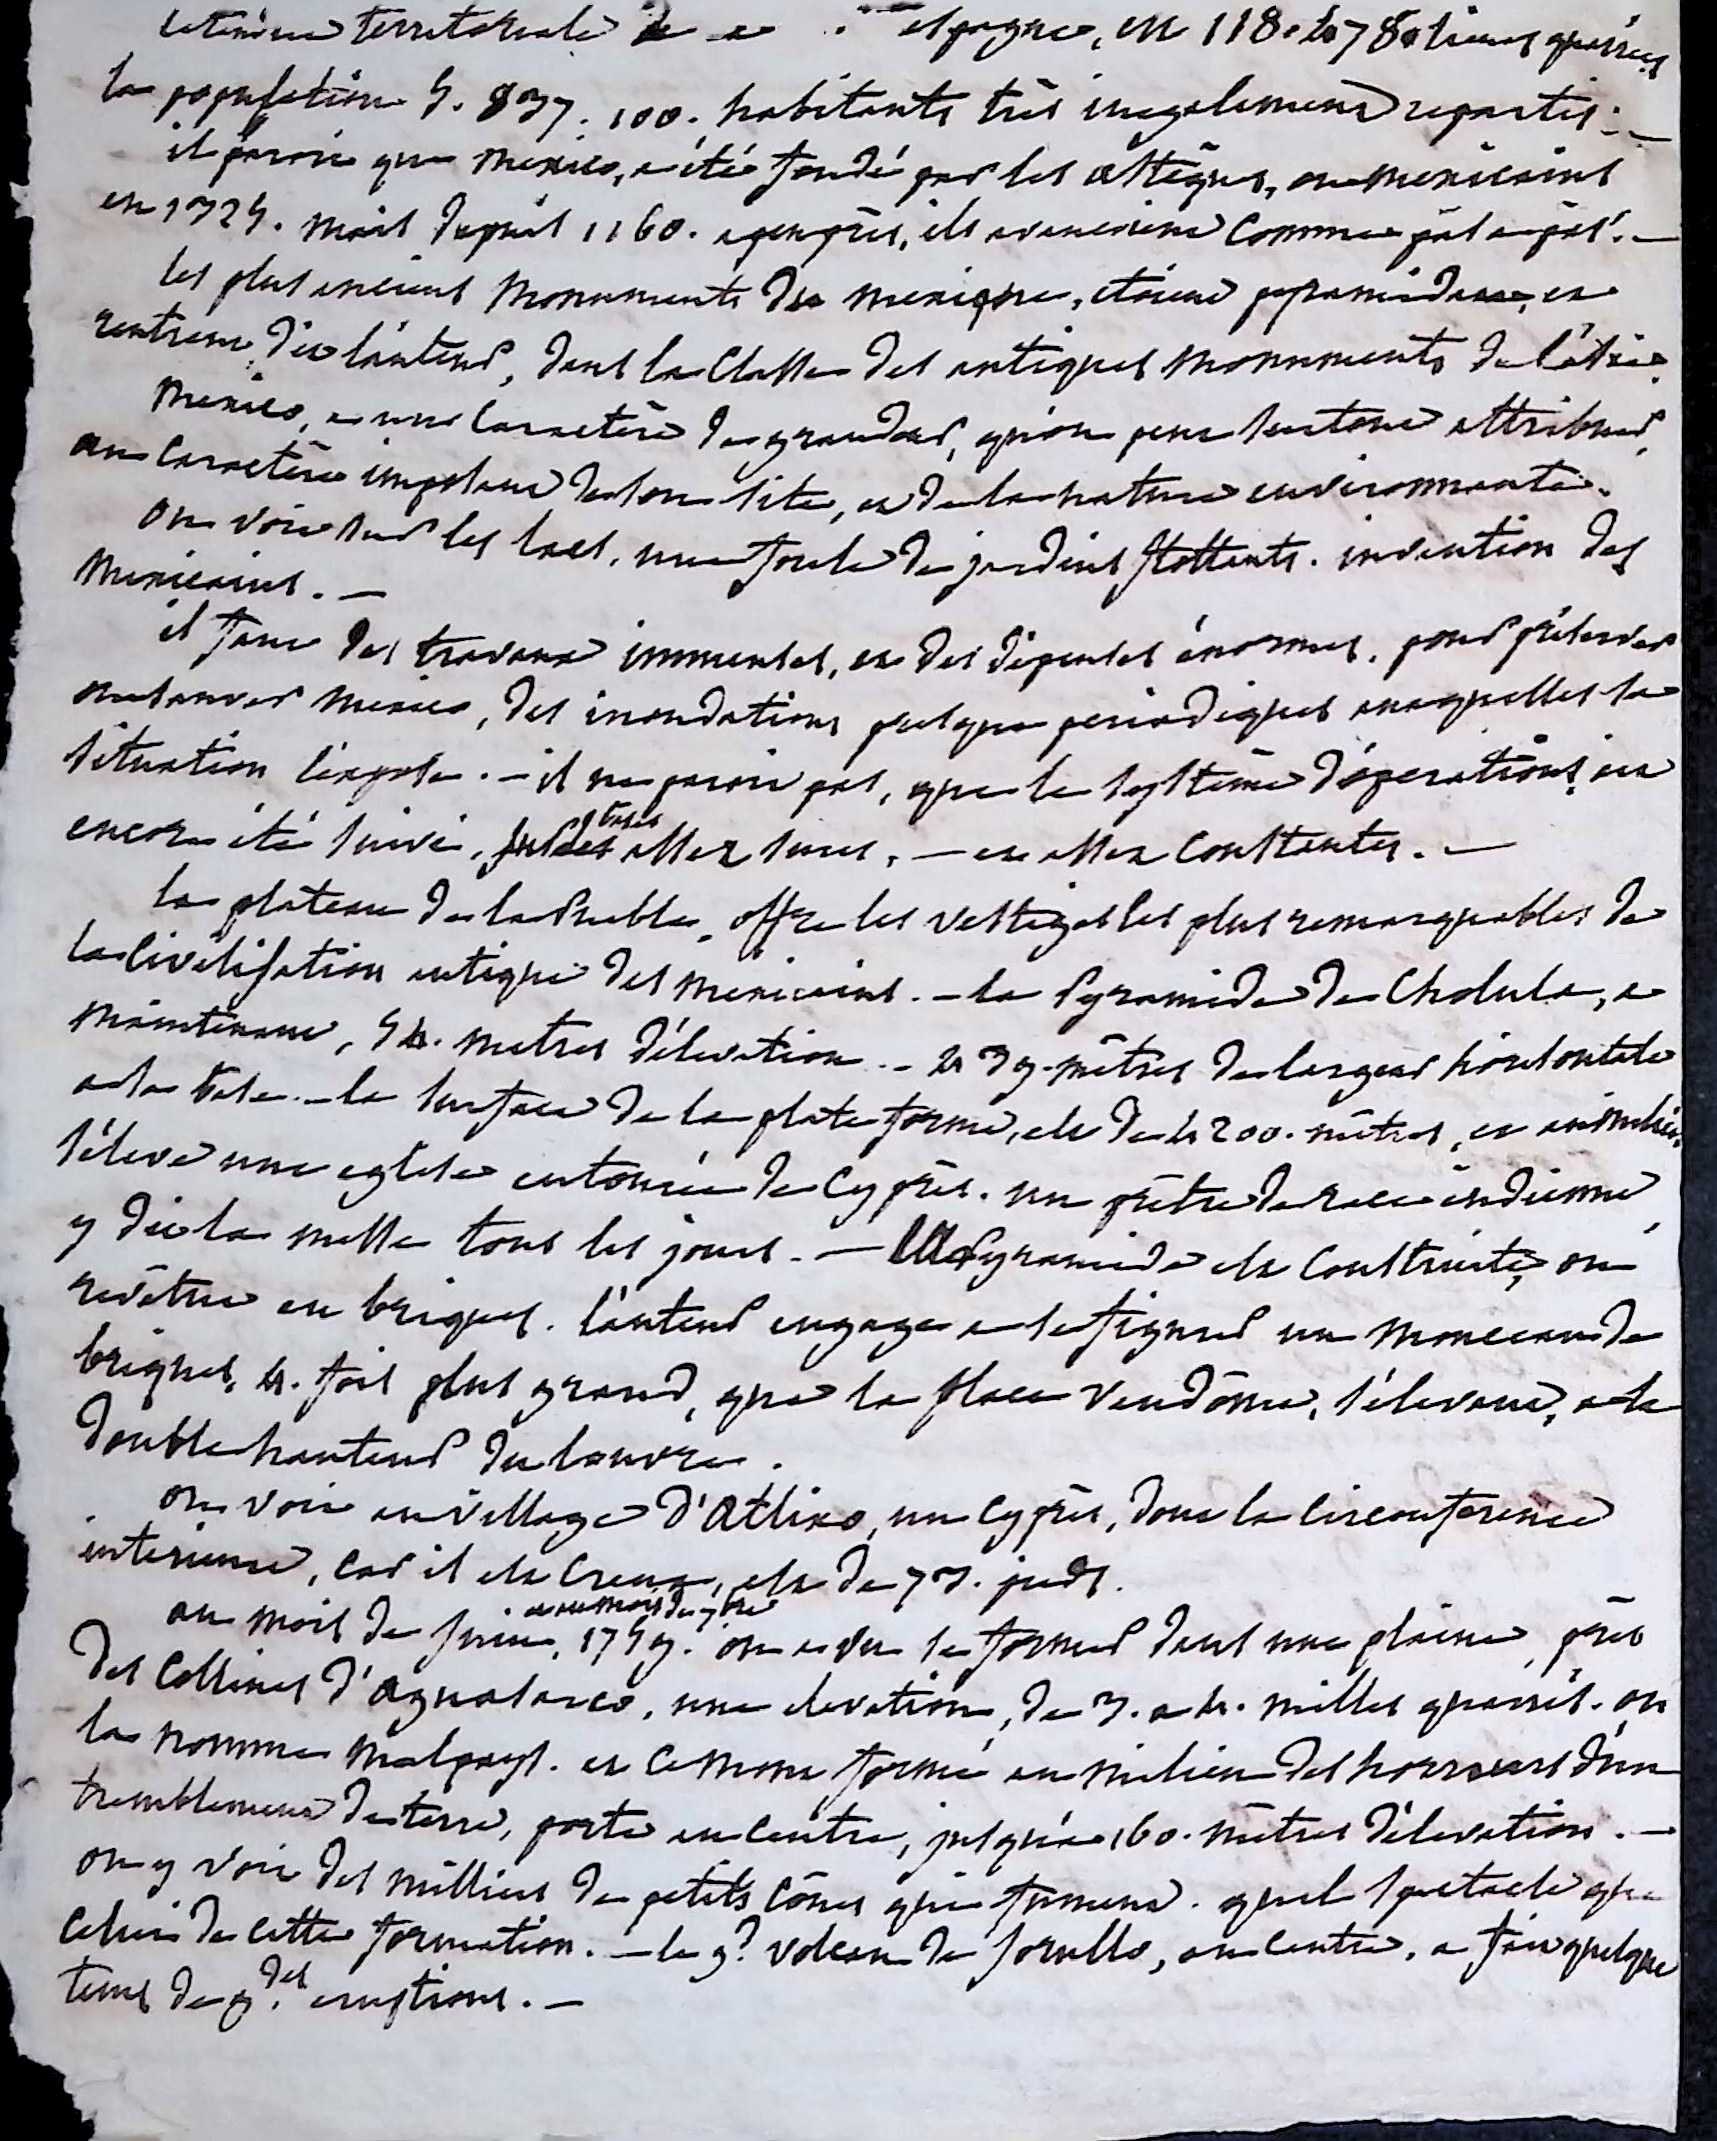 territoriale espagne, est 118. 478. lieues quarrées
la population 5. 837. 100. habitants très inegalement repartis. —
il paroit que mexico, a été fondé par les astèques, ou mexicains
en 1325. mais depuis 1160. a peu près, ils avancoient comme pas a pas. —
les plus anciens monuments du mexique, étoient pyramidaux, et
rentrent, dit l'auteur, dans la classe des antiques monuments de l'asie.
mexico, a un caractère de grandeur, qu'on peut surtout attribuer,
au caractère imposant de son site, et de la nature environnante.
on voit sur les lacs, une foule de jardins flottants. invention des
mexicains. —
il faut des travaux immenses, et des dépenses énormes, pour préserver
mexico, des inondations presque periodiques auxquelles la
situation l'expose. — il ne paroit pas, que le système d'opérations, ait
encore été suivi, sur des bases assez sures, — et assez constantes. —
le plateau de la Puebla, offre les vestiges les plus remarquables de
la civilisation antique des mexicains. — la Pyramide de Cholula, a
maintenant, 54. metres d'élevation. — 439. mètres de largeur horisontale
a la base. — la surface de la plate forme, est de 4200. mètres, et au milieu
s'éleve une eglise entourée de cyprès. un prêtre de race indienne,
y dit la messe tous les jours. — la Pyramide est construite, ou
revêtue en briques. l'auteur engage a se figurer un morceau de
briques, 4. fois plus grand, que la place Vendôme, s'élevant, a la
double hauteur du louvre.
on voit au village d'Atlixo, un cyprès, dont la circonférence
interieure, car il est creux, est de 73. pieds.
au mois de juin, et au mois de 7bre 1759. on a vu se former dans une plaine, près
des collines d'Aguasarco, une elevation, de 3. a 4. milles quarrés. on
la nomme malpays. et ce mont formé au milieu des horreurs d'un
tremblement de terre, porte au centre, jusqu'a 160. mètres d'élevation. —
on y voit des milliers de petits cônes qui fument. quel spectacle que
celui de cette formation. — le gd volcan de Jorullo, au centre, a fait quelque
tems de gdes eruptions. —